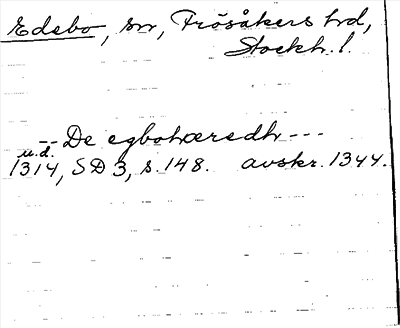 Edebo, sn, Frösåkers hd,
Stockh. l.
-- De egbohæredh ---
u.d.
1314, SD 3, s. 148. avskr. 1344.